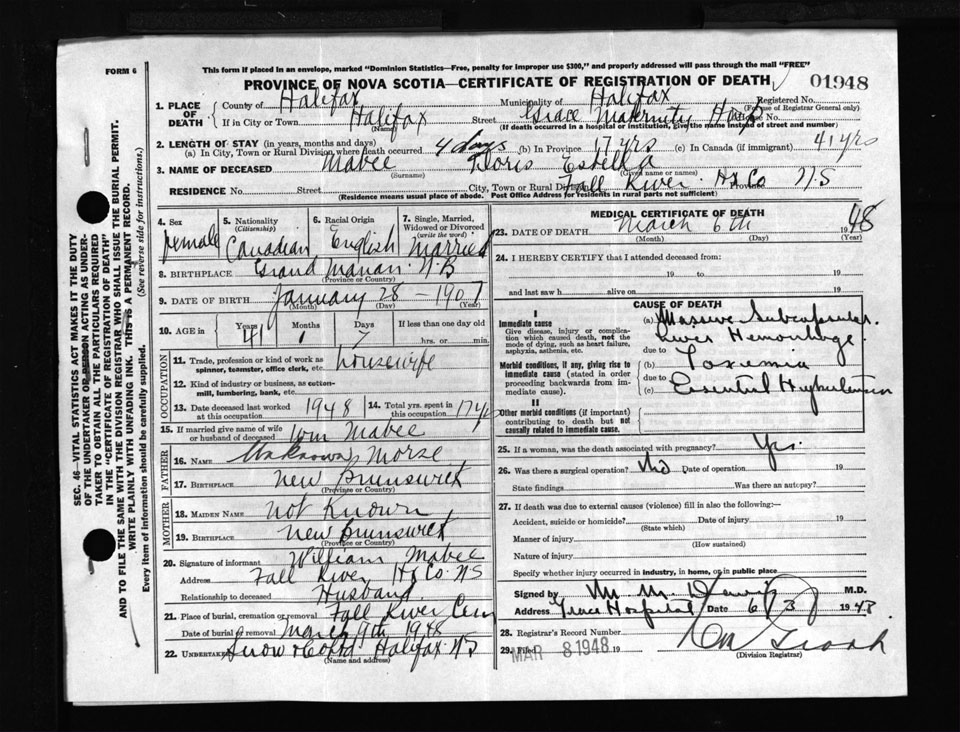 FORM 6
This form if placed in an envelope, marked "Dominion Statistics—Free, penalty for improper use $300," and properly addressed will pass through the mail "FREE"
PROVINCE OF NOVA SCOTIA—CERTIFICATE OF REGISTRATION OF DEATH
01948
1. PLACE OF DEATH
County of Halifax Municipality of Halifax Registered No.
(For use of Registrar General only)
If in City or Town Halifax Street Grace Maternity Hosp House No.
(Name) (If death occurred in a hospital or institution, give the name instead of street and number)
2. LENGTH OF STAY (in years, months and days)
(a) In City, Town or Rural Division where death occurred 4 days (b) In Province 17 yrs (c) In Canada (if immigrant) 41 yrs
3. NAME OF DECEASED Mabee Doris Estella
(Surname) (Given name or names)
RESIDENCE No. Street City, Town or Rural Division Fall River Hx Co Province N.S
(Residence means usual place of abode. Post Office Address for residents in rural parts not sufficient)
4. Sex female
5. Nationality (Citizenship) Canadian
6. Racial Origin English
7. Single, Married, Widowed or Divorced (write the word) Married
8. BIRTHPLACE Grand Manan. N.B
(Province or Country)
9. DATE OF BIRTH January 28 - 1907
(Month) (Day) (Year)
10. AGE in Years 41 Months 1 Days If less than one day old
hrs. or min.
OCCUPATION
11. Trade, profession or kind of work as spinner, teamster, office clerk, etc. housewife
12. Kind of industry or business, as cotton-mill, lumbering, bank, etc.
13. Date deceased last worked at this occupation 1948 14. Total yrs. spent in this occupation 17 yr
15. If married give name of wife or husband of deceased Wm Mabee
FATHER
16. NAME Unknown Morse
17. BIRTHPLACE New Brunswick
(Province or Country)
MOTHER
18. MAIDEN NAME Not Known
19. BIRTHPLACE New Brunswick
(Province or Country)
20. Signature of informant William Mabee
Address Fall River Hx Co. NS
Relationship to deceased Husband
21. Place of burial, cremation or removal Fall River Cem
Date of burial or removal March 9th 1948
22. Undertaker Snow & Co Ltd Halifax NS
(Name and address)
MEDICAL CERTIFICATE OF DEATH
23. DATE OF DEATH March 6th 1948
(Month) (Day) (Year)
24. I HEREBY CERTIFY that I attended deceased from:
19 to 19
and last saw h alive on 19
CAUSE OF DEATH
I
Immediate cause
Give disease, injury or complication which caused death, not the mode of dying, such as heart failure, asphyxia, asthenia, etc.
(a) Massive Subcapsular Liver Hemorrhage
due to
Morbid conditions, if any, giving rise to immediate cause (stated in order proceeding backwards from immediate cause).
(b) Toxemia
due to
(c) Essential Hypertension
II
Other morbid conditions (if important) contributing to death but not causally related to immediate cause.
25. If a woman, was the death associated with pregnancy? Yes.
26. Was there a surgical operation? No Date of operation 19
State findings Was there an autopsy?
27. If death was due to external causes (violence) fill in also the following:—
Accident, suicide or homicide? Date of injury 19
(State which)
Manner of injury
(How sustained)
Nature of injury
Specify whether injury occurred in industry, in home, or in public place
Signed by M. M. M.D.
Address Grace Hospital Date 6/3/ 1948
28. Registrar's Record Number
29. Filed MAR 8 1948 19
(Division Registrar)
SEC. 46—VITAL STATISTICS ACT MAKES IT THE DUTY
OF THE UNDERTAKER OR PERSON ACTING AS UNDER-
TAKER TO OBTAIN ALL THE PARTICULARS REQUIRED
IN THE "CERTIFICATE OF REGISTRATION OF DEATH"
AND TO FILE THE SAME WITH THE DIVISION REGISTRAR WHO SHALL ISSUE THE BURIAL PERMIT.
WRITE PLAINLY WITH UNFADING INK. THIS IS A PERMANENT RECORD.
Every item of information should be carefully supplied. (See reverse side for instructions.)